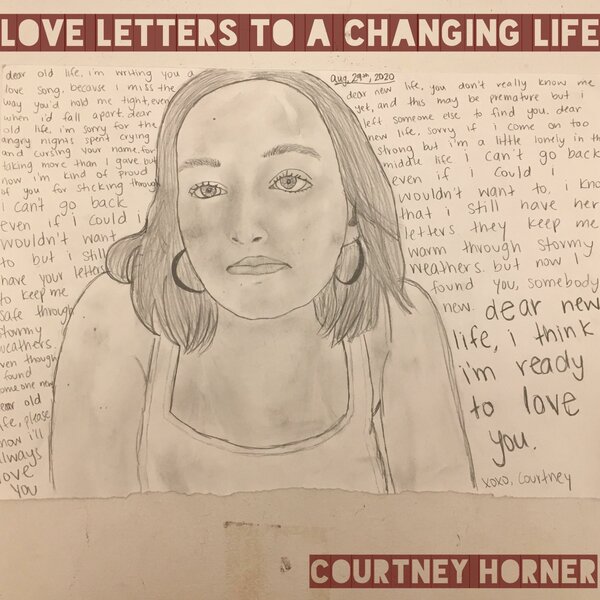 LOVE LETTERS TO A CHANGING LIFE
dear old life, i'm writing you a
love song, because i miss the
way you'd hold me tight, even
when i'd fall apart. dear
old life, i'm sorry for the
angry nights spent crying
and cursing your name, for
taking more than i gave but
now i'm kind of proud
of you for sticking through
i can't go back
even if i could i
wouldn't want
to but i still
have your letters
to keep me
safe through
stormy
weathers.
even though
i found
someone new
dear old
life, please
know i'll
always
love
you
Aug. 29th, 2020
dear new life, you don't really know me
yet, and this may be premature but i
left someone else to find you. dear
new life, sorry if i come on too
strong but i'm a little lonely in the
middle life i can't go back
even if i could i
wouldn't want to, i know
that i still have her
letters. they keep me
warm through stormy
weathers. but now i
found you, somebody
new. dear new
life, i think
i'm ready
to love
you.
xoxo, courtney
COURTNEY HORNER